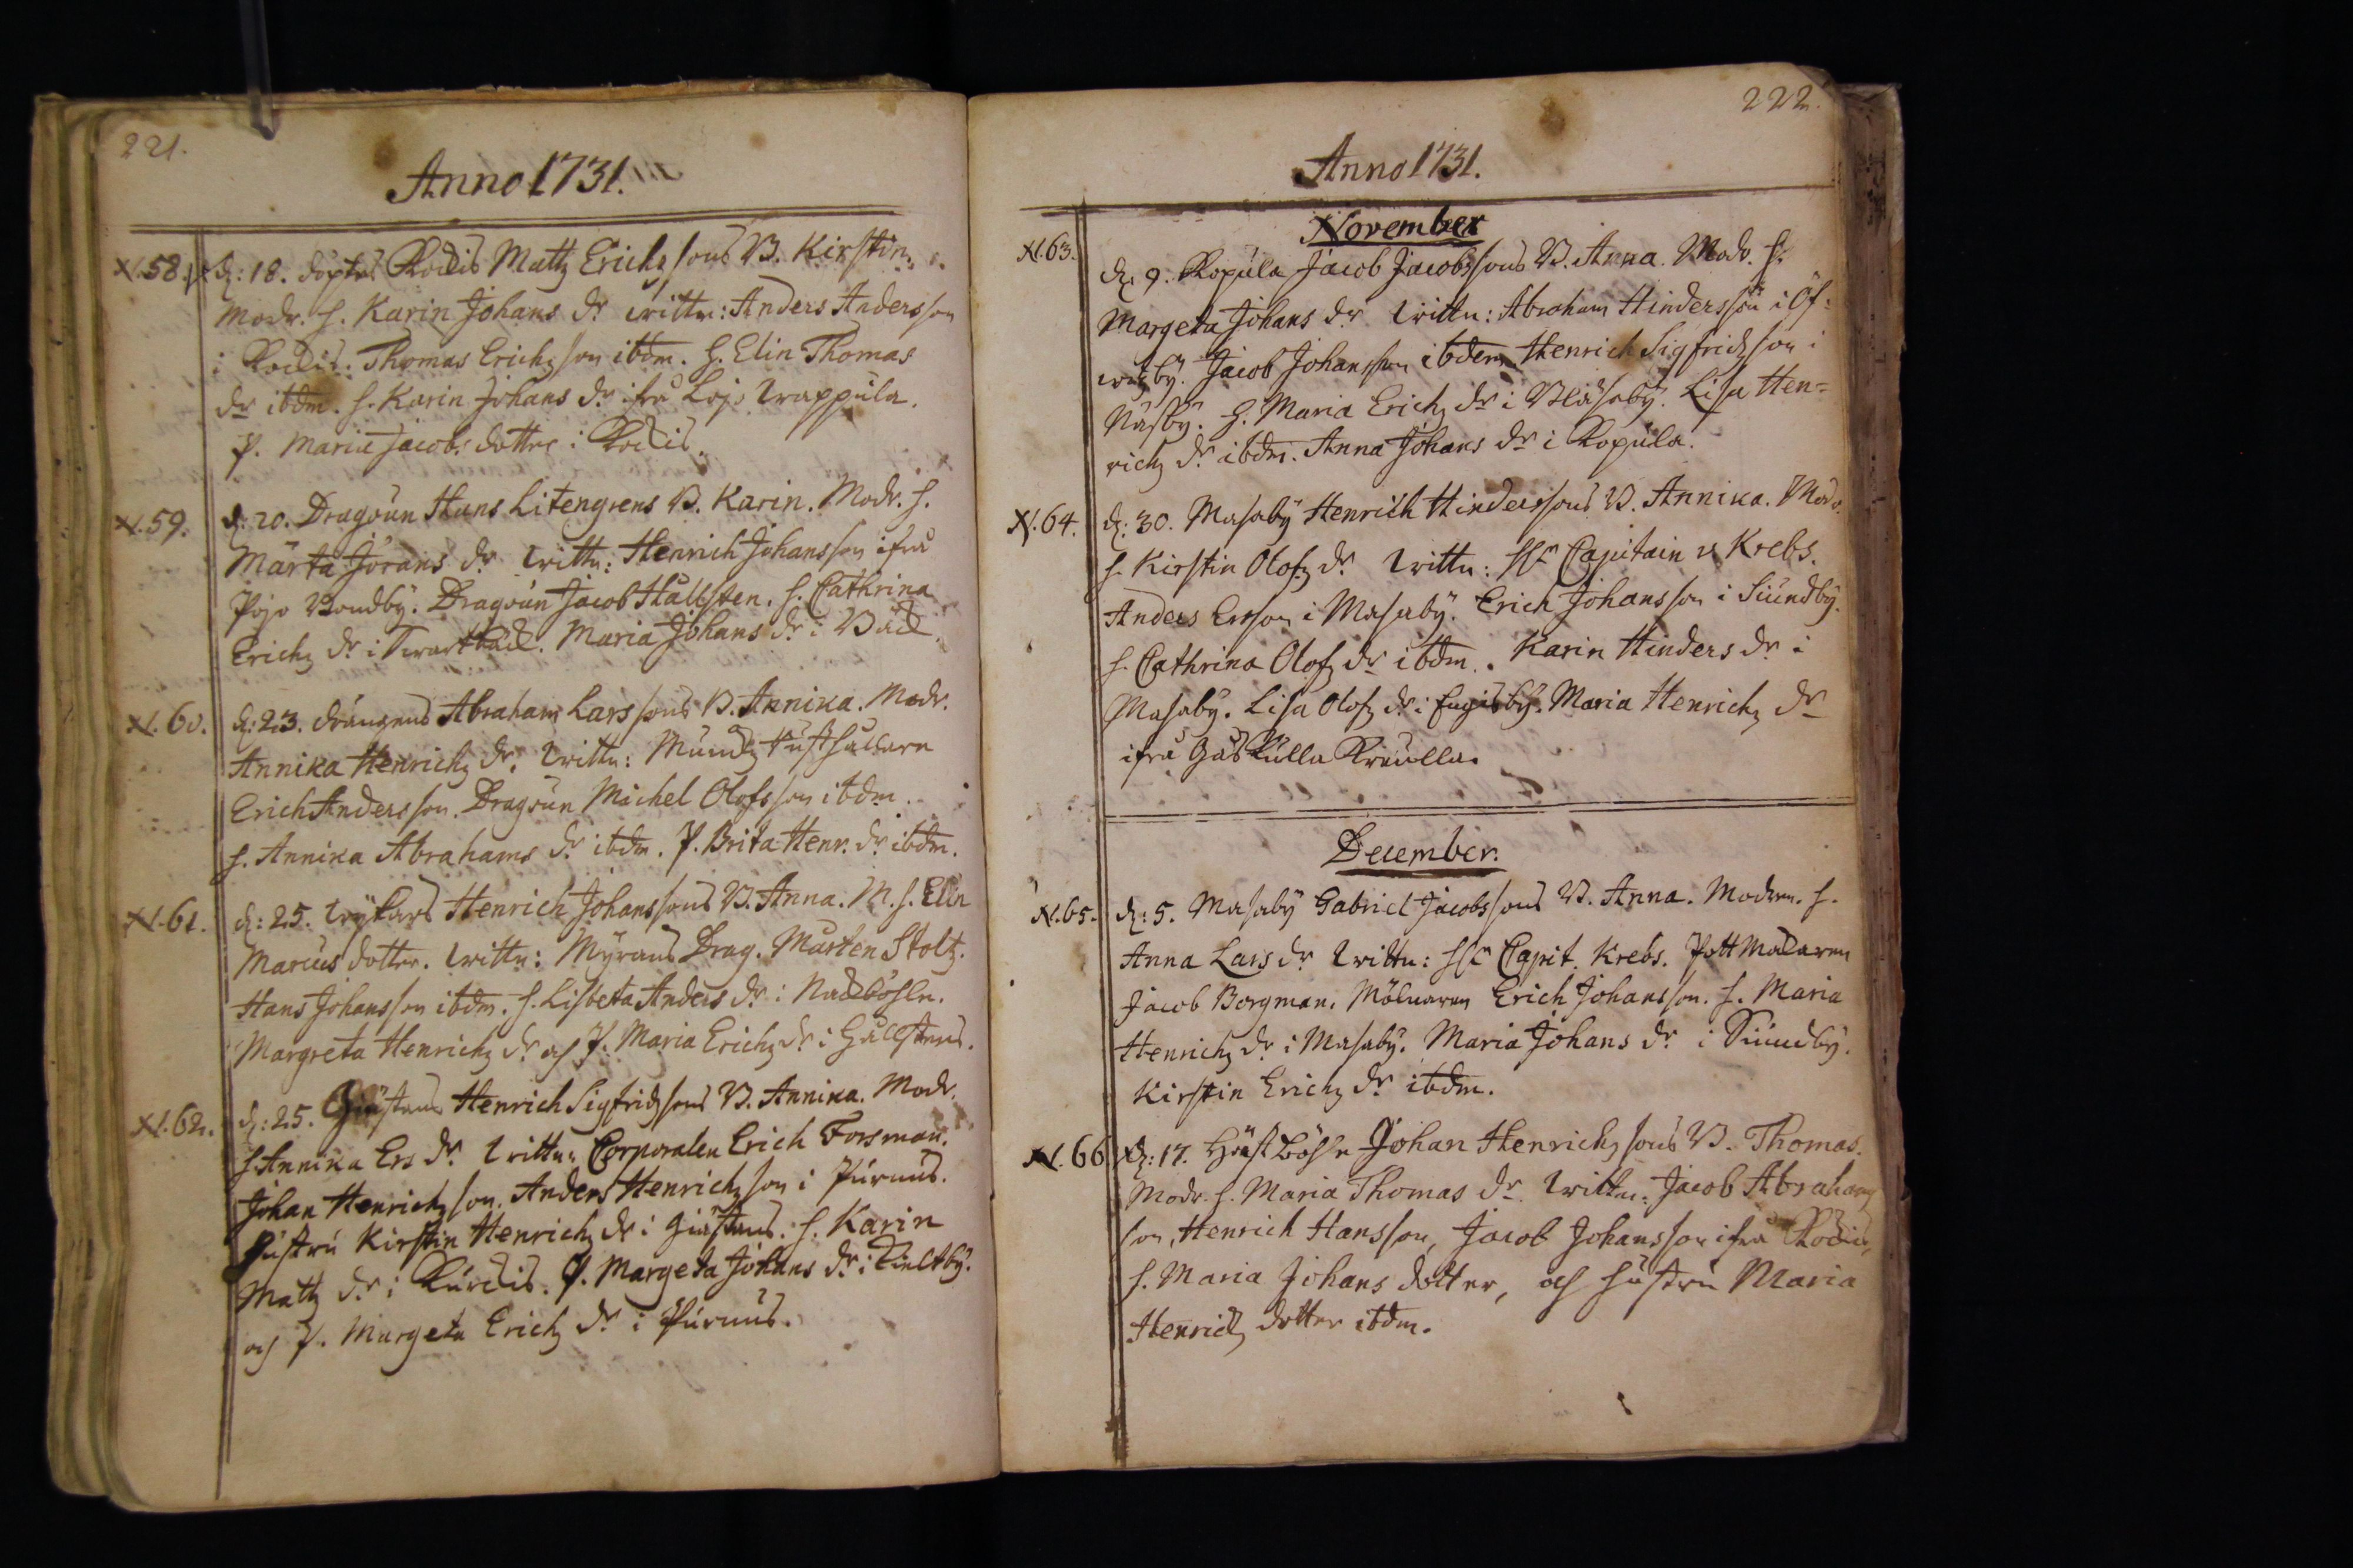 221.
Anno 1731.
N. 58. d: 18. döptes Kockis Matz Erichssons B. Kirstin.
Modr. h. Karin Johans dr wittn: Anders Andersson
i Kockis. Thomas Erichsson ibdm. h. Elin Thomas
dr ibdm. h. Karin Johans dr ifrå Lojo Wappula.
P. Maria Jacobs dotter i Kockis.
N. 59. d: 20. Dragoun Hans Litengrens B. Karin. Modr. h.
Märta Jörans dr wittn: Henrich Johansson ifrå
Pojo Bondby. Dragoun Jacob Hallsten. h. Cathrina
Erichz dr i Swartbäck. Maria Johans dr i Bäck.
N. 60. d: 23. drängens Abraham Larssons B. Annika. Modr.
Annika Henrichz dr. wittn: Rusthållaren
Erich Andersson. Dragoun Michel Olofsson ibdm.
h. Annika Abrahams dr ibdm. P. Brita Henr. dr ibdm.
N. 61. d: 25. Henrich Johanssons B. Anna. M. h. Elin
Marcus dotter. wittn: Myrans Drag. Mårten Stoltz.
Hans Johansson ibdm. h. Lisbeta Anders dr i Nackböhle.
Margreta Henrichz dr och P. Maria Erichz dr i Gållstens.
N. 62. d: 25. Henrich Sigfridssons B. Annika. Modr.
h. Annika Ers dr wittn: Corporalen Erich Forsman.
Johan Henrichzson. Anders Henrichzson i Purnus.
hustru Kirstin Henrichz dr i h. Karin
Matz dr i P. Margeta Johans dr i
och P. Margeta Erichz dr i Purnus.
222.
Anno 1731.
November
N. 63. d: 9. Kopula Jacob Jacobssons B. Anna. Modr. h.
Margeta Johans dr wittn: Abraham Hindersson i Öf-
witzby. Jacob Johansson ibdem. Henrich Sigfridsson i
Näsby. h. Maria Erichz dr i Bläsaby. Lisa Hen-
richz dr ibdm. Anna Johans dr i Kopula.
N. 64. d: 30. Masaby Henrich Hinderssons B. Annika. Modr.
h. Kirstin Olofz dr wittn: Hr Capitain v Krebs.
Anders Ersson i Masaby. Erich Johansson i Siundby.
h. Cathrina Olofz dr ibdm. Karin Hinders dr i
Masaby. Lisa Olofz dr i Engisby. Maria Henrichz dr
ifrå Kulla
December.
N. 65. d: 5. Masaby Gabriel Jacobssons B. Anna. Modren. h.
Anna Lars dr wittn: Hr Capit. Krebs. Pottmakaren
Jacob Borgman. Mölnaren Erich Johansson. h. Maria
Henrichz dr i Masaby. Maria Johans dr i Siundby.
Kirstin Erichz dr ibdm.
N. 66 d: 17. Hästböhle Johan Henrichzsons B. Thomas.
Modr. h. Maria Thomas dr wittn: Jacob Abrahams
son, Henrich Hansson, Jacob Johansson ifrå Kockis,
h. Maria Johans dotter, och hustru Maria
Henrichz dotter ibdm.